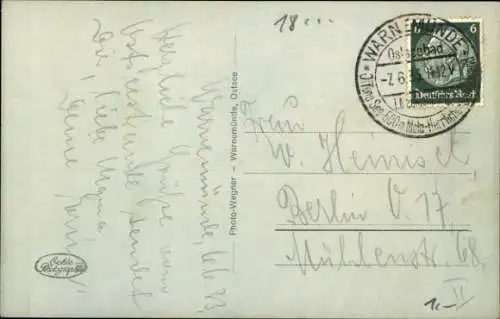 18
WARNEMÜNDE
Ostseebad
-7.6. 11-12V
600m
6
Deutsches Reich
Warnemünde,
Herzliche Grüße vom
Ostseestrande sendet
Dir, liebe Mama
Deine
Photo-Wegner – Warnemünde, Ostsee
Echte
Photographie
Frau
W. Heinisch
Berlin O. 17,
Mühlenstr. 68,
II